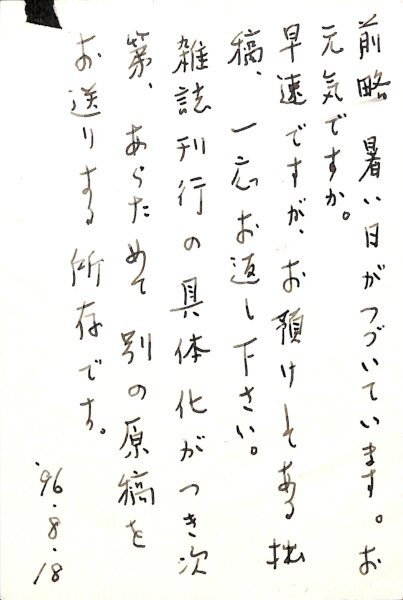 前略 暑い日がつづいています。お
元気ですか。
早速ですが、お預けしてある拙
稿、一応お返し下さい。
雑誌刊行の具体化がつき次
第、あらためて別の原稿を
お送りする所存です。
'96.8.18